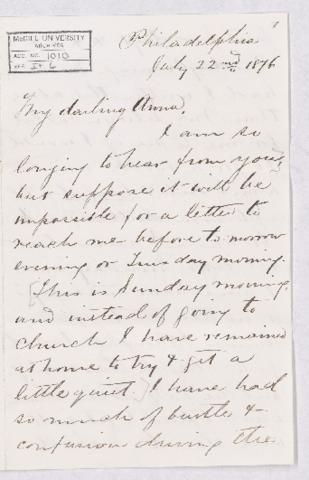 McGILL UNIVERSITY
ARCHIVES
ACC. NO. 1010
REF.
Philadelphia
July 22nd 1876
My darling Anna,
I am so
longing to hear from you,
but suppose it will be
impossible for a letter to
reach me before to-morrow
evening or Tuesday morning.
[This is Sunday morning,
and instead of going to
church I have remained
at home to try & get a
little quiet.] I have had
so much of bustle &
confusion during the